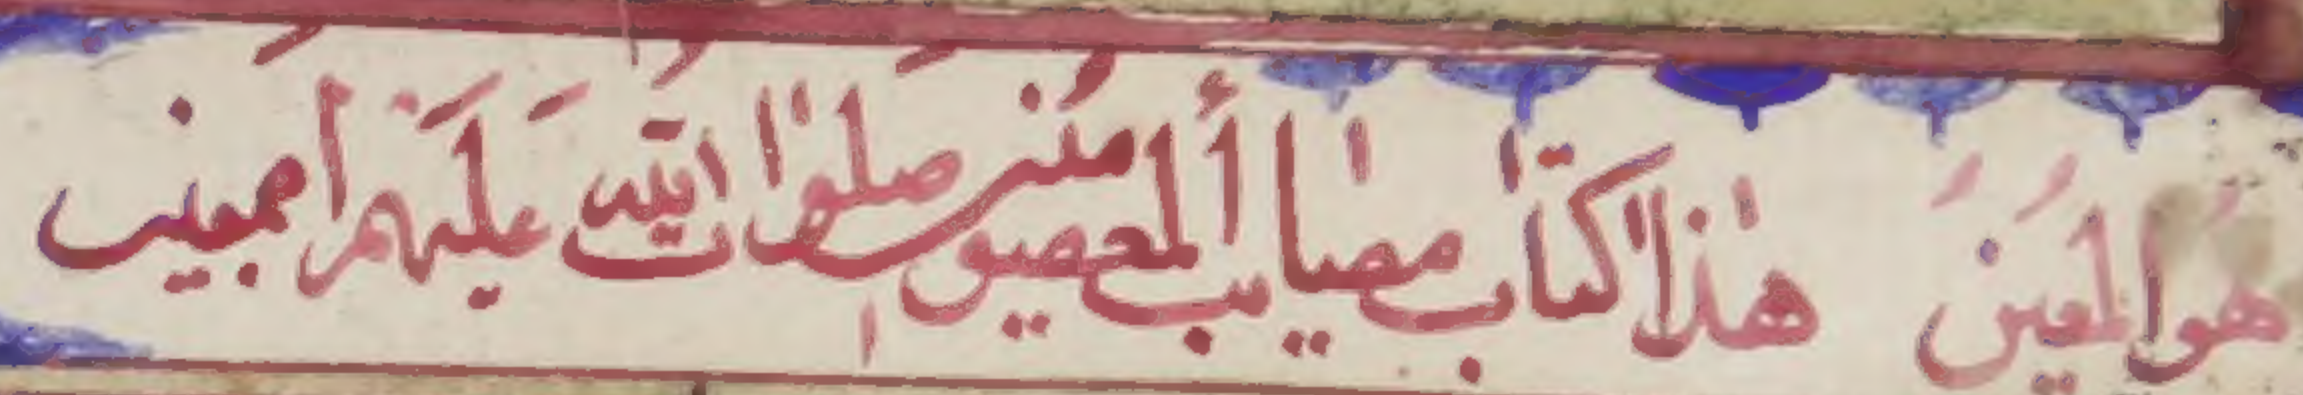 هُوَ المُعين هذا كتاب مصايب ألمعصومين صلوات الله عليهم أجمعين